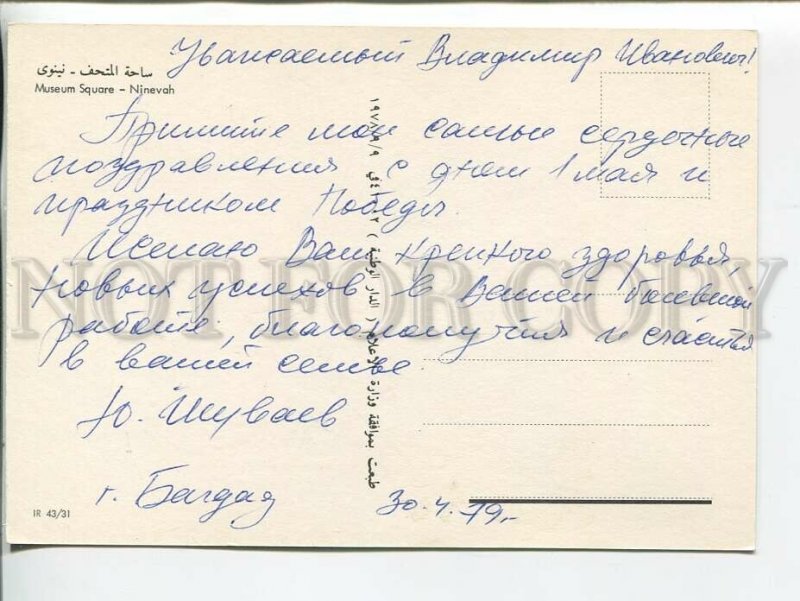 Уважаемый Владимир Иванович!
ساحة المتحف - نينوى
Museum Square - Ninevah
Примите мои самые сердечные
поздравления с днем 1 мая и
праздником Победы.
Желаю Вам крепкого здоровья,
новых успехов в Вашей
работе, благополучия и счастья
в вашей семье.
Ю. Шуваев
г. Багдад
30.4.79г.
IR 43/31
طبعت بموافقة وزارة الاعلام ( الدار الوطنية )
NOT FOR COPY